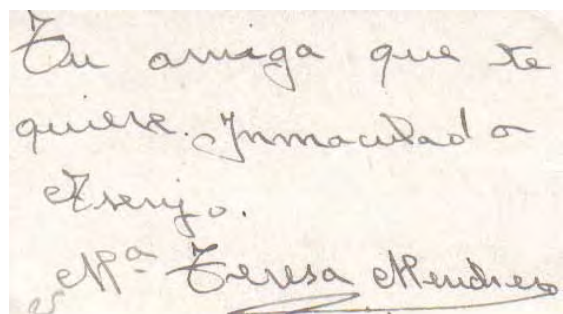 Tu amiga que te
quiere. Inmaculada
Asenjo.
Mª Teresa